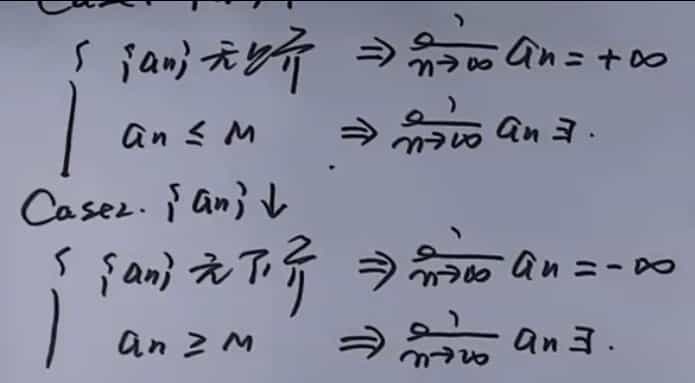 {an} 无上界 ⇒ lim n→∞ an = +∞
an ≤ M ⇒ lim n→∞ an ∃.
Case2. {an}↓
{an} 无下界 ⇒ lim n→∞ an = -∞
an ≥ M ⇒ lim n→∞ an ∃.